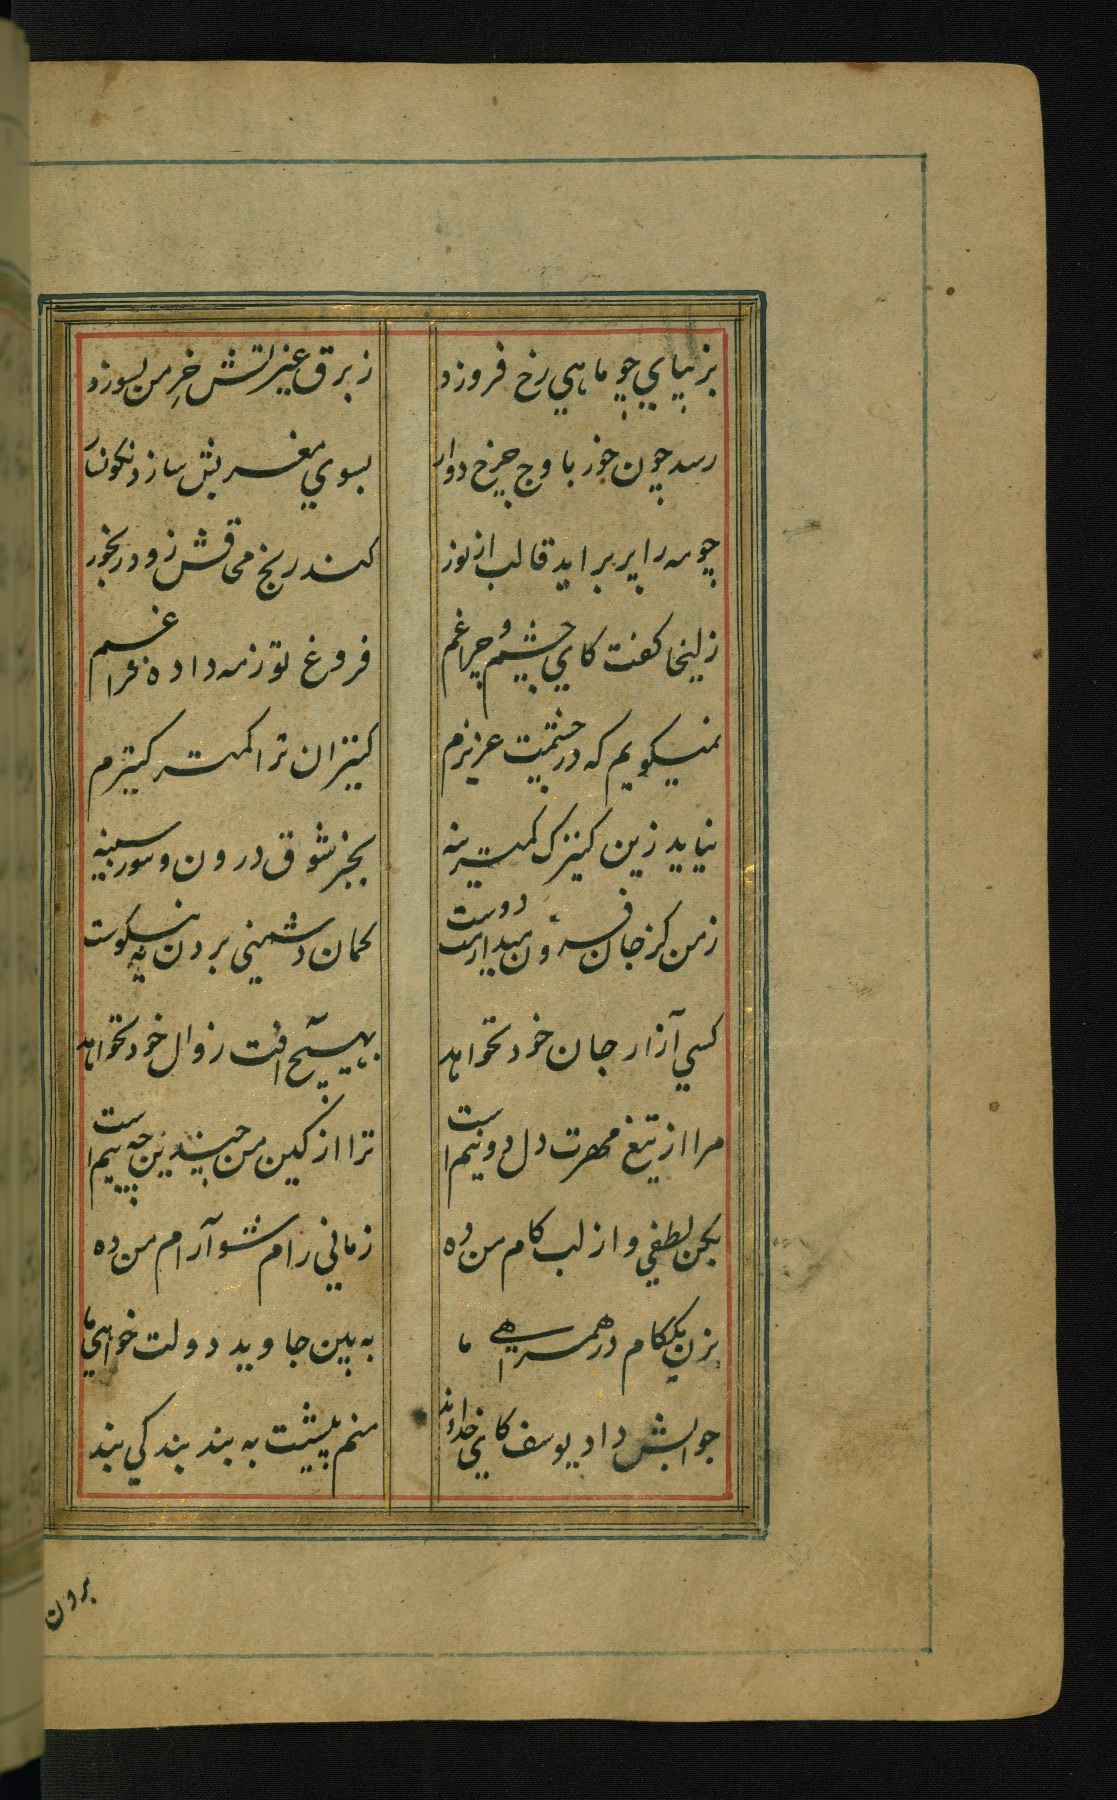 بزیبایي چو ماهي رخ فروزد ز برق غیرتش خرمن بسوزد
رسد چون خور باوج چرخ دوار بسوي مغربش سازد نکونسار
چو مه را پر براید قالب از نور کند رنج محاقش زود رنجور
زلیخا کفت کاي چشم و چراغم فروغ تو ز مه داده فراغم
نمیکویم که در چشمت عزیزم کنیزان ترا کمتر کنیزم
نیاید زین کنیزک کمترینه بجز شوق درون و سوز سینه
ز من کز جان فزون میدارمت دوست کمان دشمني بردن نه نیکوست
کسي آزار جان خود نخواهد بهیچ آفت زوال خود نخواهد
مرا از تیغ مهرت دل دونیم است ترا از کین من چندین چه بیم است
بکن لطفي و از لب کام من ده زماني رام شو آرام من ده
بزن یککام در همراهي ما به بین جاوید دولت خواهي ما
جوابش داد یوسف کاي خداوند منم پیشت به بند بندکي بند
برون